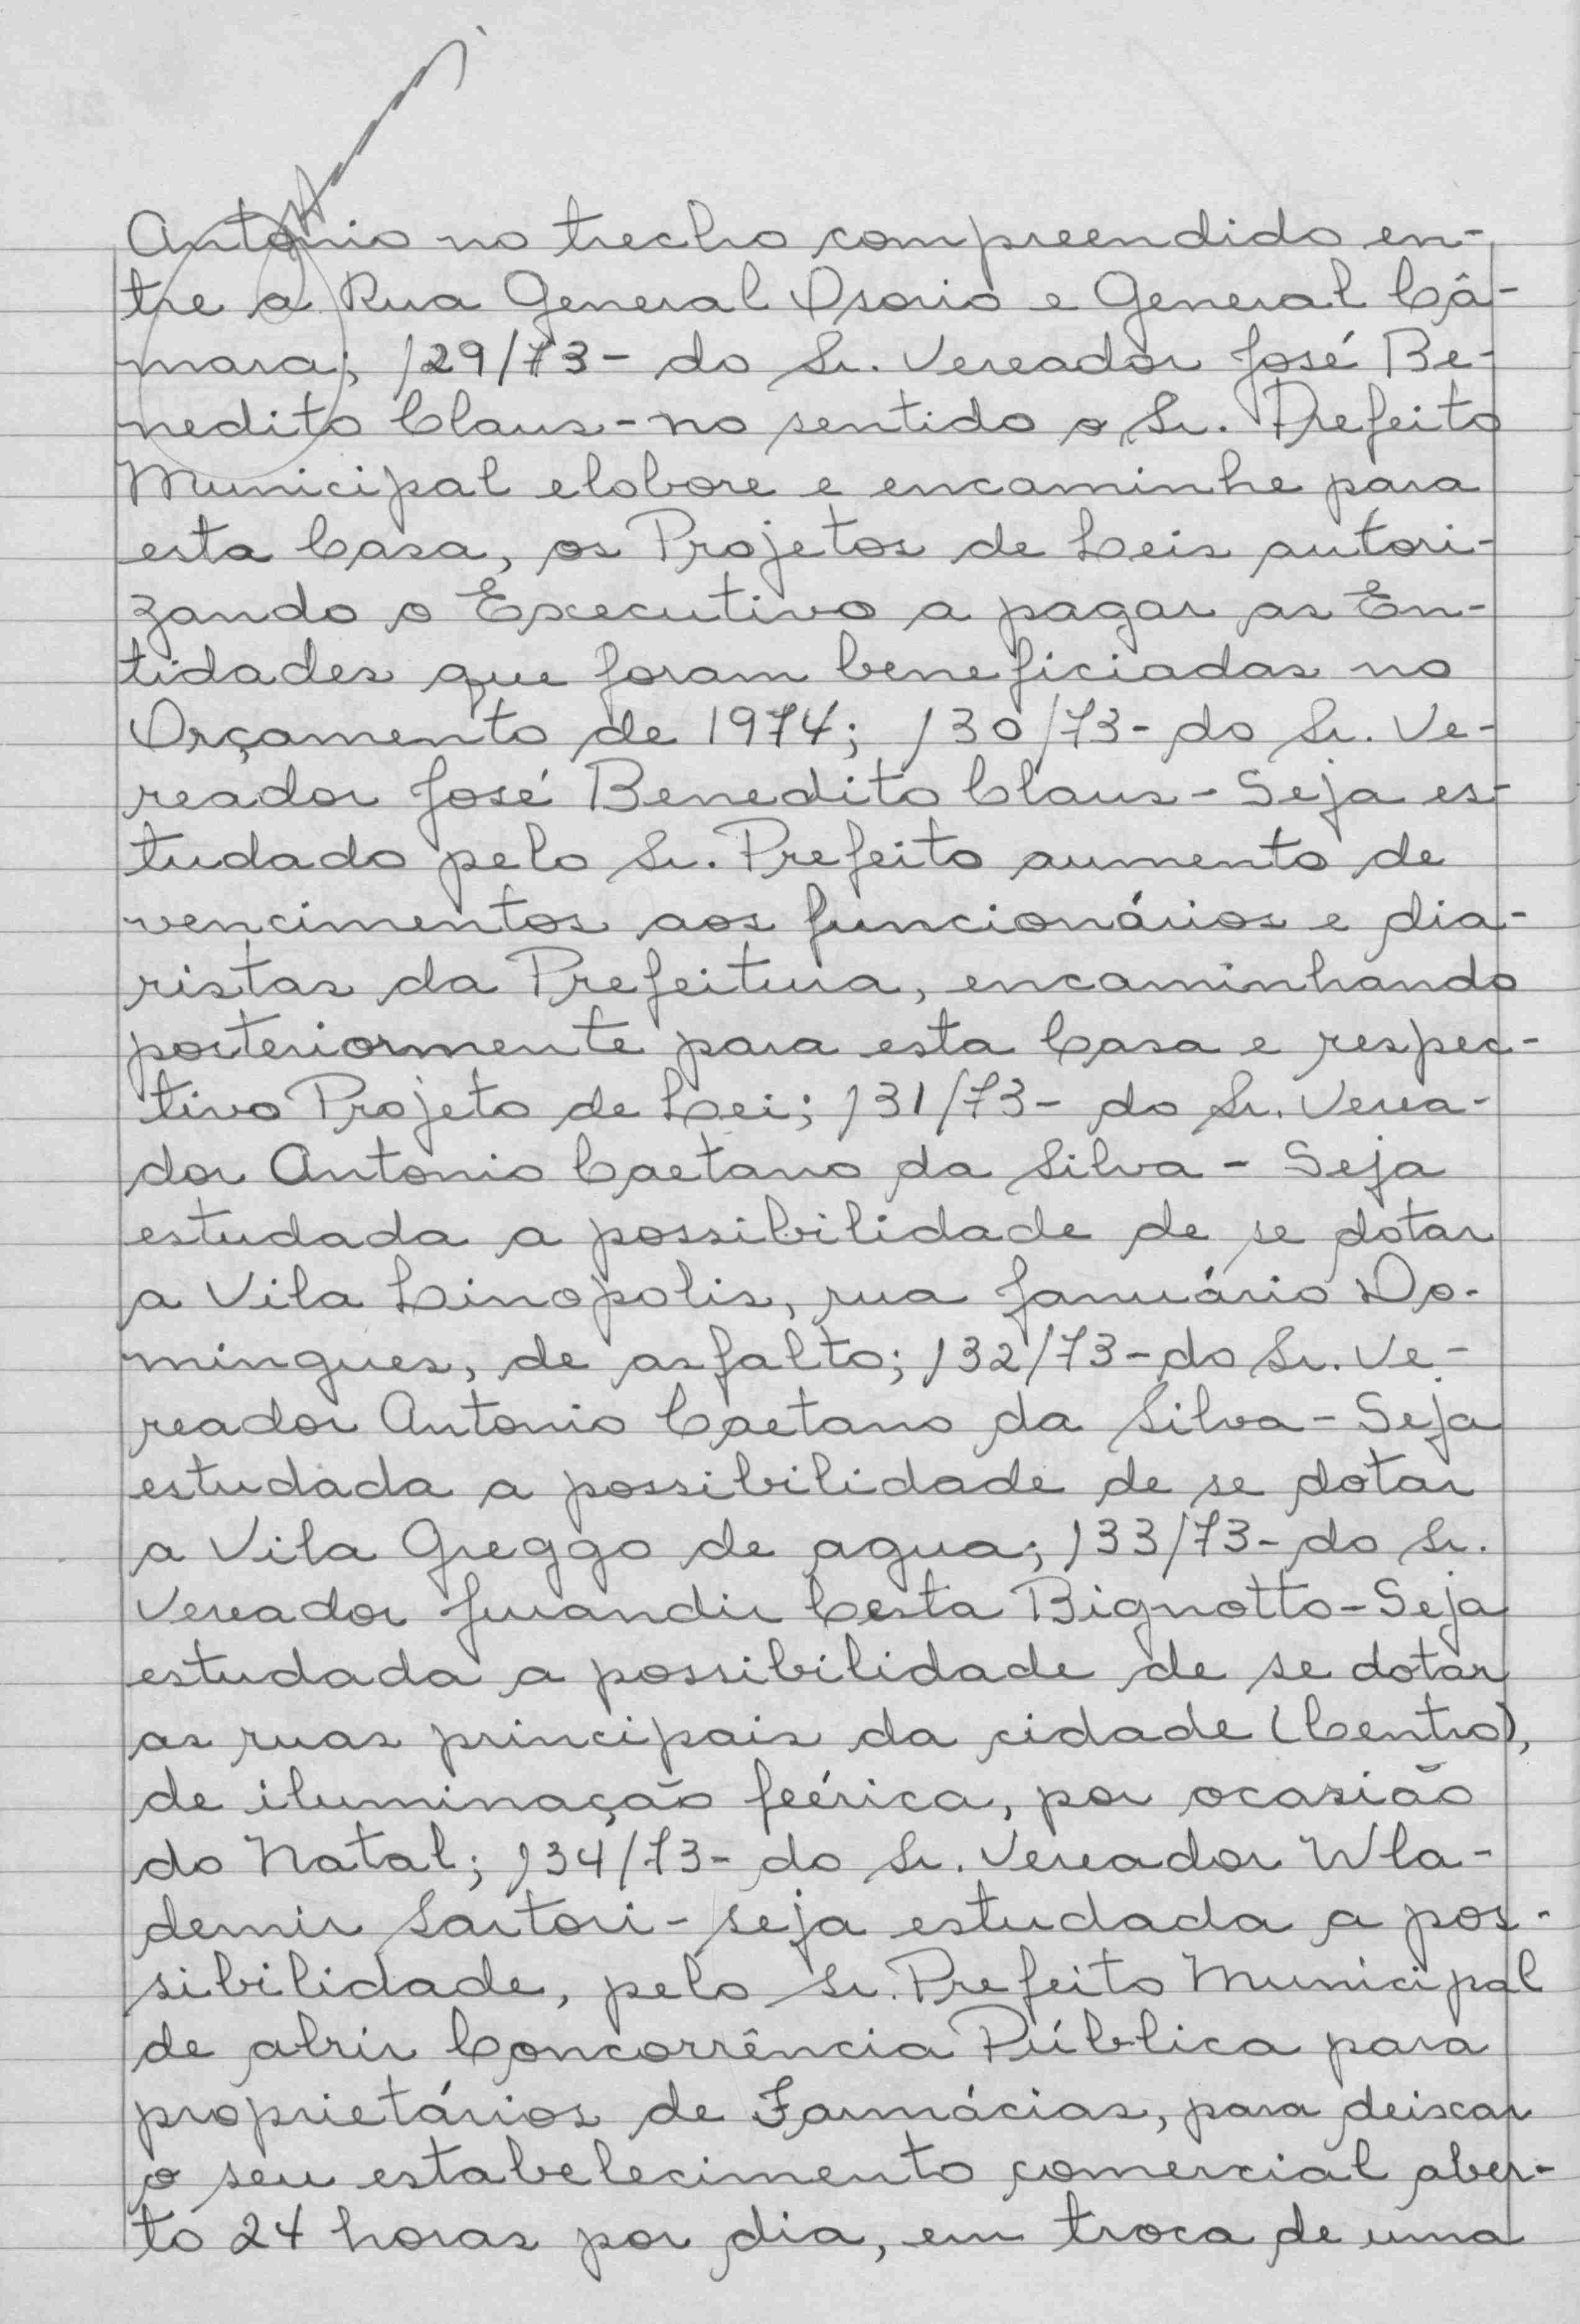 Antonio no trecho compreendido en-
tre a Rua General Osorio e General Câ-
mara; 129/73- do Sr. Vereador José Be-
nedito Claus - no sentido o Sr. Prefeito
Municipal elobore e encaminhe para
esta Casa, os Projetos de Leis autori-
zando o Executivo a pagar as En-
tidades que foram beneficiadas no
Orçamento de 1974; 130/73- do Sr. Ve-
reador José Benedito Claus - Seja es-
tudado pelo Sr. Prefeito aumento de
vencimentos aos funcionários e dia-
ristas da Prefeitura, encaminhando
posteriormente para esta Casa e respec-
tivo Projeto de Lei; 131/73- do Sr. Verea-
dor Antonio Caetano da Silva - Seja
estudada a possibilidade de se dotar
a Vila Linopolis, rua Januário Do-
mingues, de asfalto; 132/73- do Sr. Ve-
reador Antonio Caetano da Silva - Seja
estudada a possibilidade de se dotar
a Vila Greggo de agua; 133/73- do Sr.
Vereador Jurandir Cesta Bignotto - Seja
estudada a possibilidade de se dotar
as ruas principais da cidade (Centro),
de iluminação feérica, por ocasião
do Natal; 134/73- do Sr. Vereador Wla-
demir Sartori - seja estudada a pos-
sibilidade, pelo Sr. Prefeito Municipal
de abrir Concorrência Pública para
proprietários de Farmácias, para deixar
o seu estabelecimento comercial aber-
to 24 horas por dia, em troca de uma